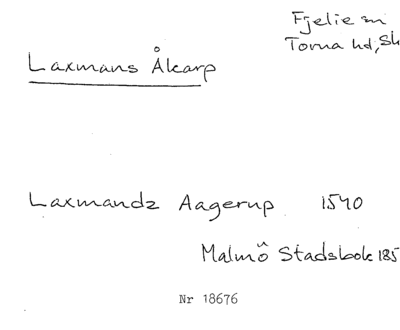 Fjelie sn
Torna hd, Sk
Laxmans Åkarp
Laxmandz Aagerup 1540
Malmö Stadsbok 185
Nr 18676